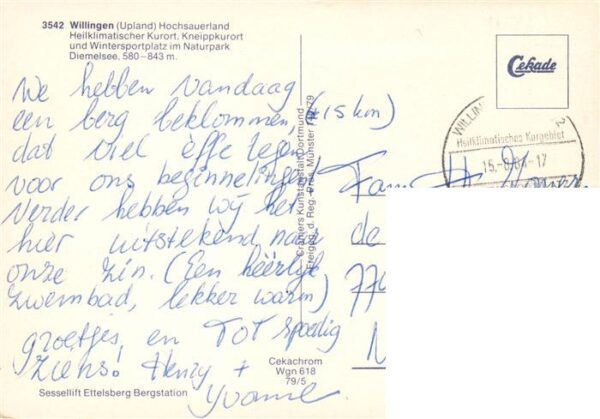 3542 Willingen (Upland) Hochsauerland
Heilklimatischer Kurort, Kneippkurort
und Wintersportplatz im Naturpark
Diemelsee, 580–843 m.
Cekade
WILLIN
Heilklimatisches Kurgebiet
We hebben vandaag
een berg beklommen, (± 15 km)
dat viel effe tegen
voor ons beginnelingen!
Verder hebben wij het
hier uitstekend naar
onze zin. (Een heerlijk
zwembad, lekker warm)
groetjes en tot spoedig
ziens! Henry +
Yvonne.
Fam.
de
774
Cramers Kunstanstalt Dortmund
Freigeg. d. Reg.-Präs. Münster
Cekachrom
Wgn 618
79/5
Sessellift Ettelsberg Bergstation